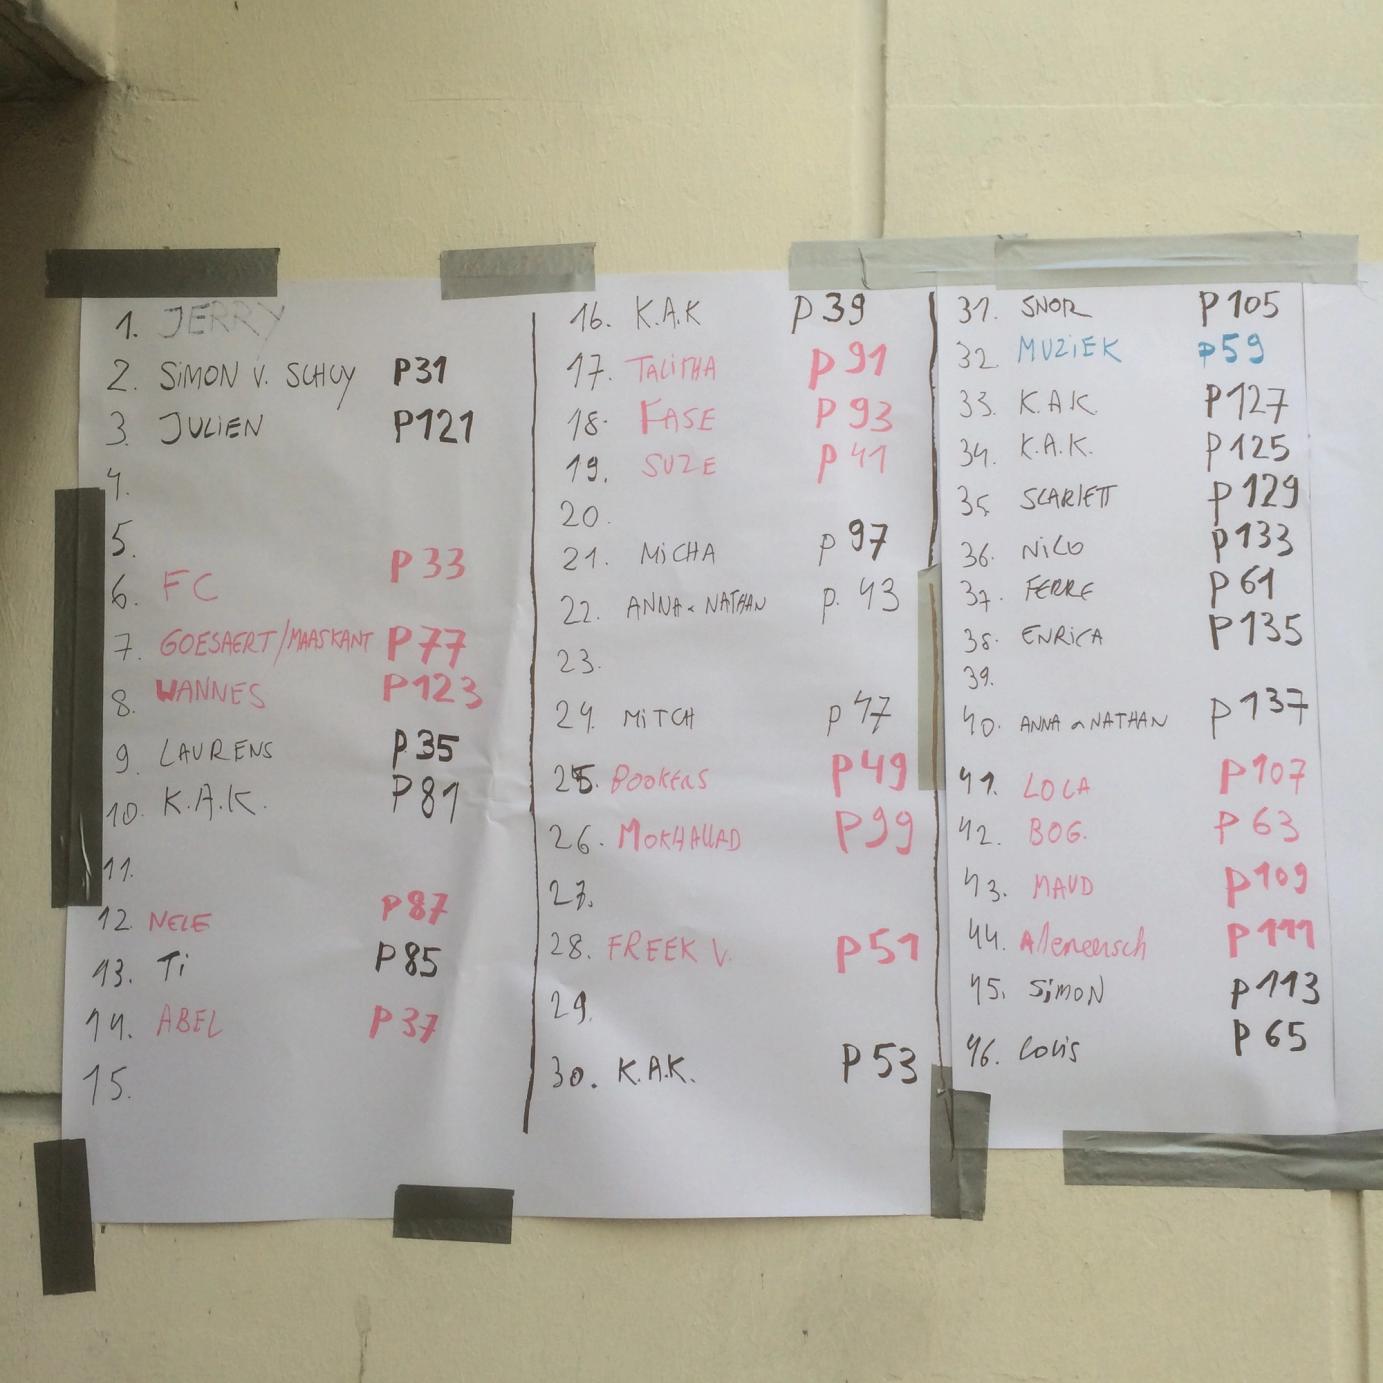 1. JERRY
2. SiMON V. SCHUY P31
3. JULIEN P121
4.
5.
6. FC P33
7. GOESAERT/MAASKANT P77
8. WANNES P123
9. LAURENS P35
10. K.A.K. P81
11.
12. NELE P87
13. Ti P85
14. ABEL P37
15.
16. K.A.K P39
17. TALITHA P91
18. FASE P93
19. SUZE P41
20.
21. MiCHA p97
22. ANNA & NATHAN p. 43
23.
24. MiTCH p47
25. BOOKERS P49
26. MOKHALLAD P99
27.
28. FREEK V. P51
29.
30. K.A.K. P53
31. SNOR P105
32. MUZiEK P59
33. K.A.K. P127
34. K.A.K. P125
35. SCARlETT P129
36. NiCO P133
37. FERRE P61
38. ENRiCA P135
39.
40. ANNA & NATHAN P137
41. LOLA P107
42. BOG. P63
43. MAUD P109
44. Allemeersch P111
45. SiMON P113
46. Louis P65